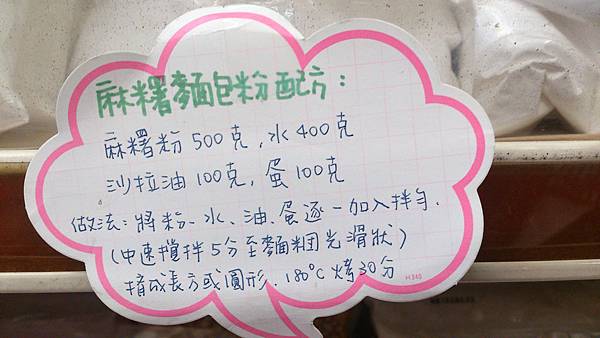 麻糬麵包粉配方：
麻糬粉500克，水400克
沙拉油100克，蛋100克
做法：將粉、水、油、蛋逐一加入拌勻．
（中速攪拌5分至麵糰光滑狀）
揹成長方或圓形．180°C烤30分